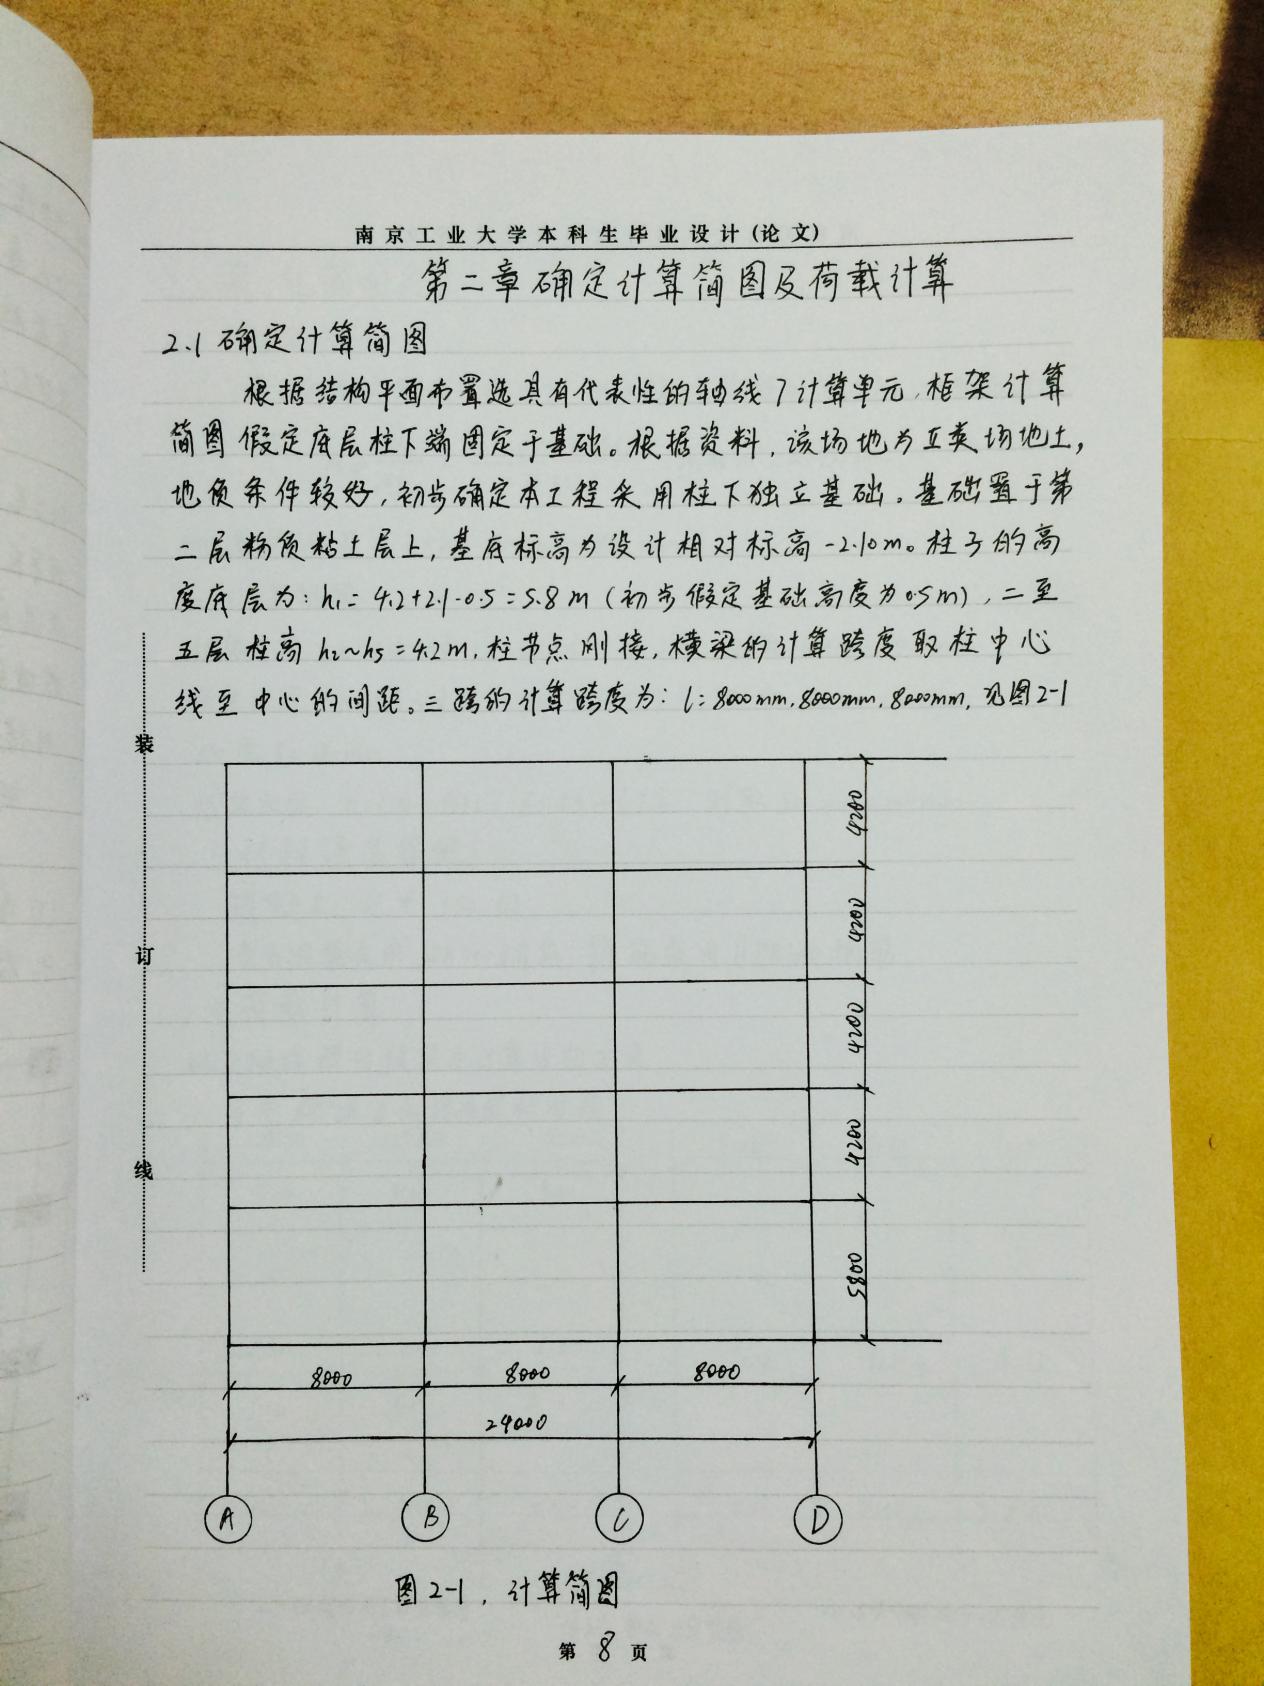 南京工业大学本科生毕业设计(论文)
第二章确定计算简图及荷载计算
2.1 确定计算简图
根据结构平面布置选具有代表性的轴线7计算单元,框架计算
简图假定底层柱下端固定于基础。根据资料,该场地为II类场地土,
地质条件较好,初步确定本工程采用柱下独立基础。基础置于第
二层粉质粘土层上,基底标高为设计相对标高-2.10m。柱子的高
度底层为:h₁=4.2+2.1-0.5=5.8m(初步假定基础高度为0.5m),二至
五层柱高h₂~h₅=4.2m,柱节点刚接,横梁的计算跨度取柱中心
线至中心的间距。三跨的计算跨度为:l=8000mm,8000mm,8000mm,见图2-1
装
订
线
4200
4200
4200
4200
5800
8000 8000 8000
24000
A B C D
图2-1,计算简图
第 8 页